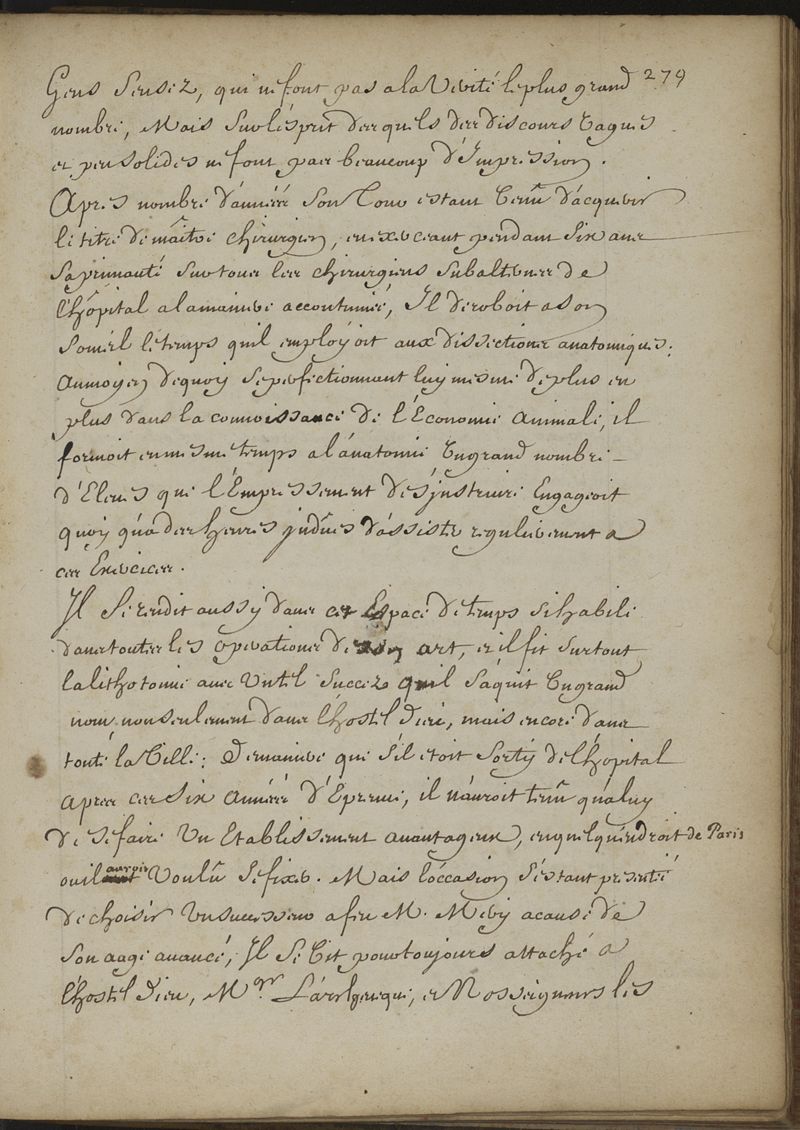 279
Gens Sensez, qui ne font pas a la Verité le plus grand
nombre, Mais Sur l'ésprit desquels des discours Vagues
et peu solides ne font pas beaucoup d'Impression.
Apres nombre d'années Son Tour estant Venû d'acquerir
le titre de maître chirurgien, en exerceant pendant Six ans
Sa primauté Sur tous les chirurgiens Subalternes de
l'hôpital a la maniere accoutumée, Il deroboit a son
Someil le temps quil employoit aux dissections anatomiques;
au moyen de quoy Se perfectionnant luy mesme de plus en
plus dans la connoissance de l'Economie Animale, il
formoit en mesme temps a l'ánatomie Un grand nombre
d'Eleves que l'Empressement de s'jnstruire Engageoit
quoy qu'a des heures jndûes d'assister regulierement a
ces Exercices.
Il Se rendit aussy dans cet Espace de temps si habile
dans toutes les operations de son art, et il fit Surtout
la lithotomie avec Un tel Succez quil S'aquit Un grand
nom non seulement dans l'hostel dieu, mais encore dans
touté la Ville; De maniere que s'il etoit Sorty de l'hôpital
apres ces Six Années d'Epreuve, il n'auroit tenû qu'a luy
de se faire Un Etablissement avantageux, en quelqu'endroit de Paris
ou il auroit Voulû Se fixer. Mais l'occasion S'estant presenté
de choisir Un successeur a feu M. Mery a cause de
Son aage avancé, Il Se Vit pour toujours attaché a
l'hostel dieu, M.gr L'archeveque, et Nosseigneurs les